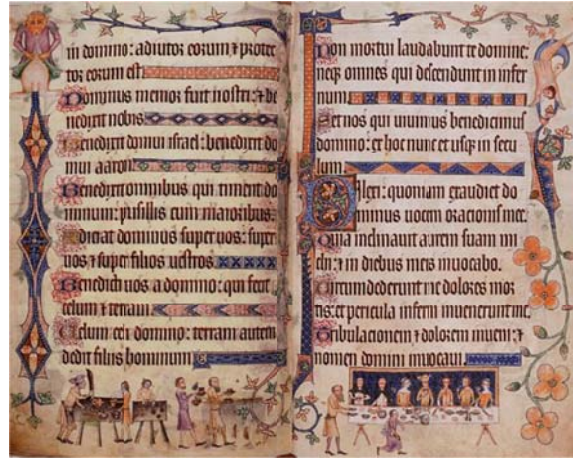 in domino: adiutor eorum ⁊ protec
tor eorum est.
Dominus memor fuit nostri: ⁊ be
nedixit nobis
Benedixit domui israel: benedixit do
mui aaron
Benedixit omnibus qui timent do
minum: pusillis cum maioribus.
Adiciat dominus super uos: super
uos ⁊ super filios uestros
Benedicti uos a domino: qui fecit
celum ⁊ terram
Celum celi domino: terram autem
dedit filiis hominum
Non mortui laudabunt te domine:
neqz omnes qui descendunt in infer
num
Set nos qui uiuimus benedicimus
domino: ex hoc nunc et usqz in secu
lum
ilexi: quoniam exaudiet do
minus uocem oracionis mee.
Quia inclinauit aurem suam mi
chi: ⁊ in diebus meis inuocabo.
Circumdederunt me dolores mor
tis: et pericula inferni inuenerunt me.
Tribulacionem ⁊ dolorem inueni: ⁊
nomen domini inuocaui